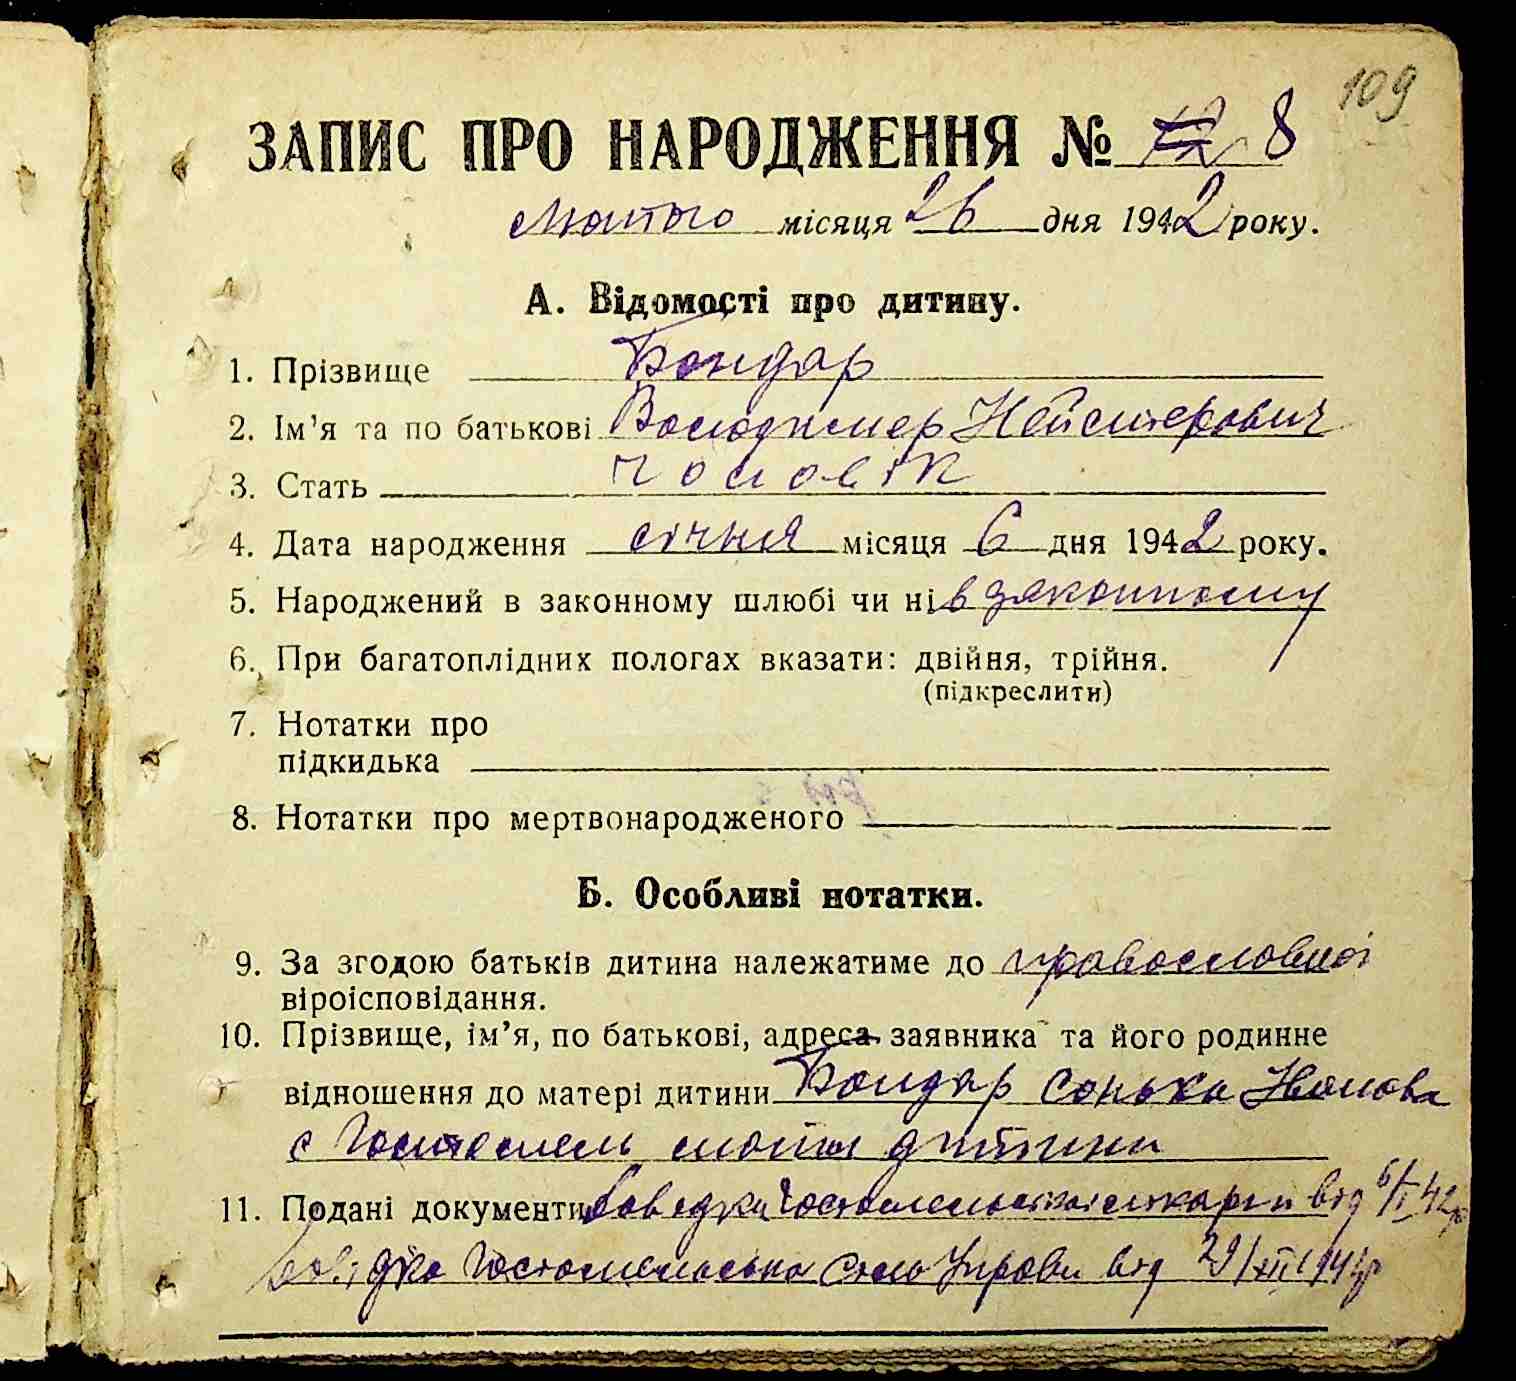 109
ЗАПИС ПРО НАРОДЖЕННЯ № 8
лютого місяця 26 дня 1942 року.
А. Відомості про дитину.
1. Прізвище Бондар
2. Ім'я та по батькові Володимер Нейстерович
3. Стать Чоловік
4. Дата народження січня місяця 6 дня 1942 року.
5. Народжений в законному шлюбі чи ні в законному
6. При багатоплідних пологах вказати: двійня, трійня.
(підкреслити)
7. Нотатки про
підкидька
8. Нотатки про мертвонародженого
Б. Особливі нотатки.
9. За згодою батьків дитина належатиме до православної
віроісповідання.
10. Прізвище, ім'я, по батькові, адреса заявника та його родинне
відношення до матері дитини Бондар Сонька Іванова
с Гостомель мати дитини
11. Подані документи Довідки Гостомельської лікарні від 6/I 42р
Довідка Гостомельська Сель Управи від 29/XII 1941р